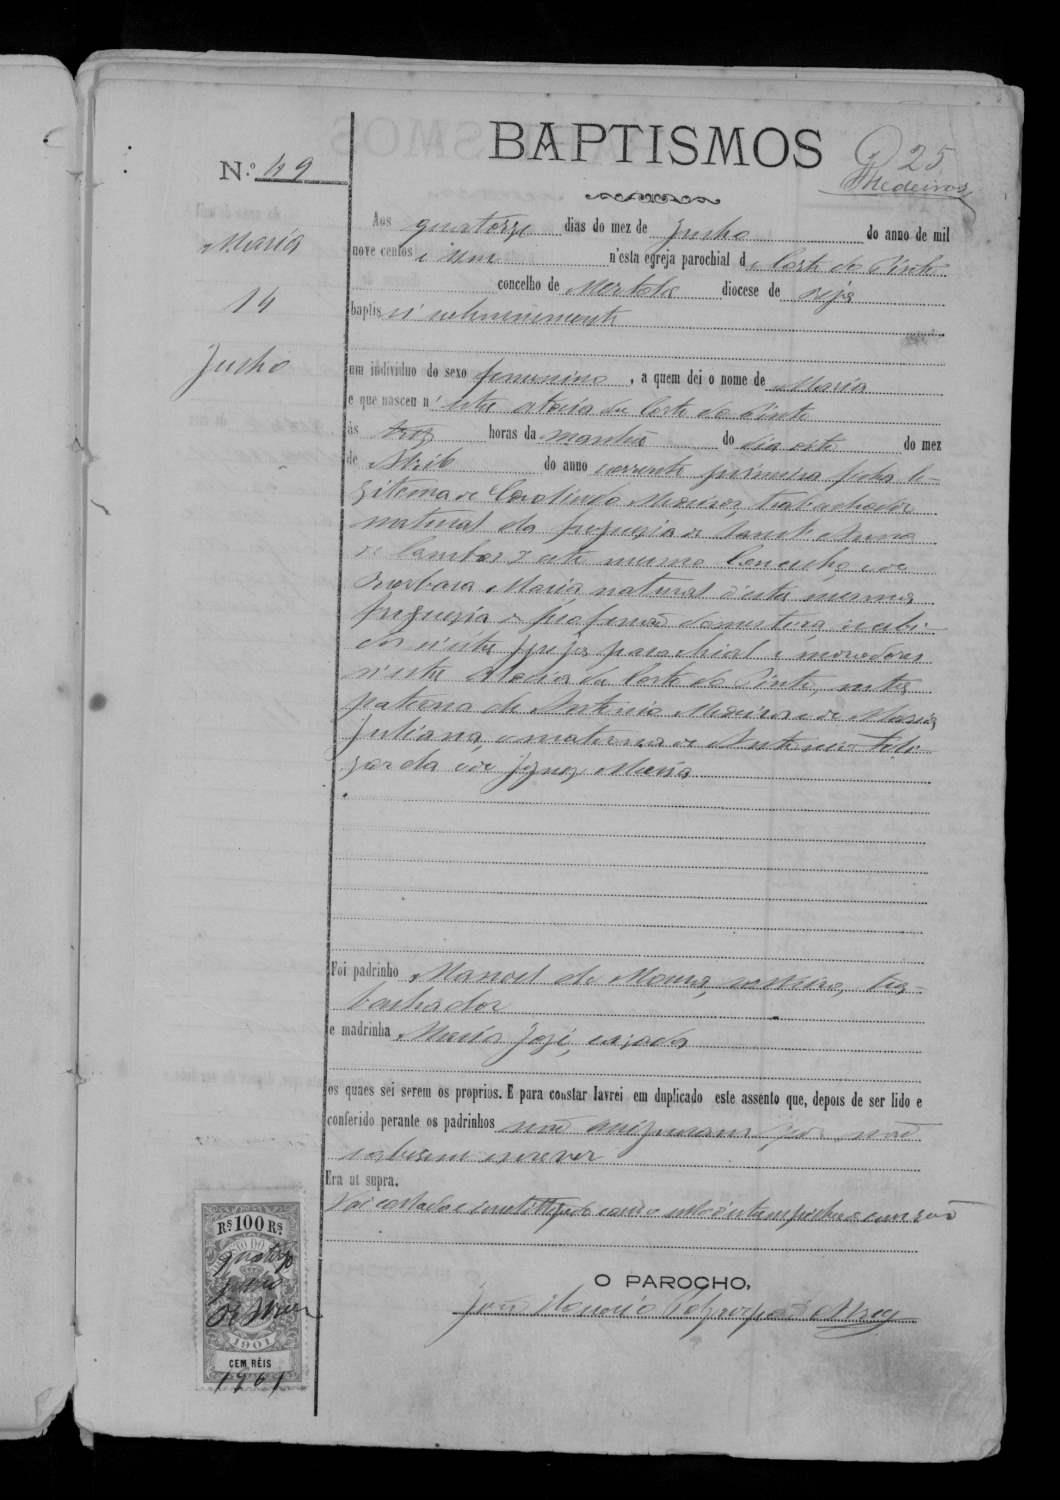 BAPTISMOS
25
Medeiros
N.º 49
Maria
14
Junho
Aos quatorze dias do mez de Junho do anno de mil
nove centos e um n'esta egreja parochial d Corte do Pinto
concelho de Mertola diocese de Beja
baptisei solemnemente
um individuo do sexo femenino, a quem dei o nome de Maria
e que nasceu n'esta aldeia da Corte do Pinto
ás tres horas da manhã do dia sete do mez
de Abril do anno corrente primeira filha le-
gitema de Medeiros, trabalhador
natural da freguezia de Sant'Anna
de Cambas d'este mesmo Concelho, e de
Barbara Maria, natural d'esta mesma
freguezia de profissão domestica, recebi-
dos n'esta Igreja parochial e moradores
n'esta Aldeia da Corte do Pinto, neta
paterna de Antonio e de Maria
Juliana, e materna de Antonio
e de Ignez Maria
Foi padrinho Manoel de Moura, solteiro, tra-
balhador
e madrinha Maria José, cazada
os quaes sei serem os proprios. E para constar lavrei em duplicado este assento que, depois de ser lido e
conferido perante os padrinhos não assignaram por não
saberem escrever
Era ut supra.
Vai collada e inutilizada
O PAROCHO,
João
Rs 100 Rs
quatorze
junho
de mil
1901
CEM RÉIS
1901